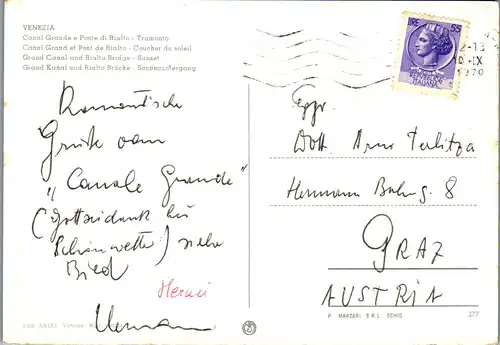 VENEZIA
Canal Grande e Ponte di Rialto - Tramonto
Canal Grand et Pont de Rialto - Coucher du soleil
Grand Canal and Rialto Bridge - Sunset
Grand Kanal und Rialto Brücke - Sonnenuntergang
LIRE 55
12-13
-IX
1970
Romantische
Grüße vom
„Canale Grande"
(Gottseidank bei
Schönwetter) siehe
Bild
Herausi
Egr.
Dott. Arno Terlitza
Hermann Bahrg. 8
GRAZ
AUSTRIA
P. MARZARI S.R.L. SCHIO
377